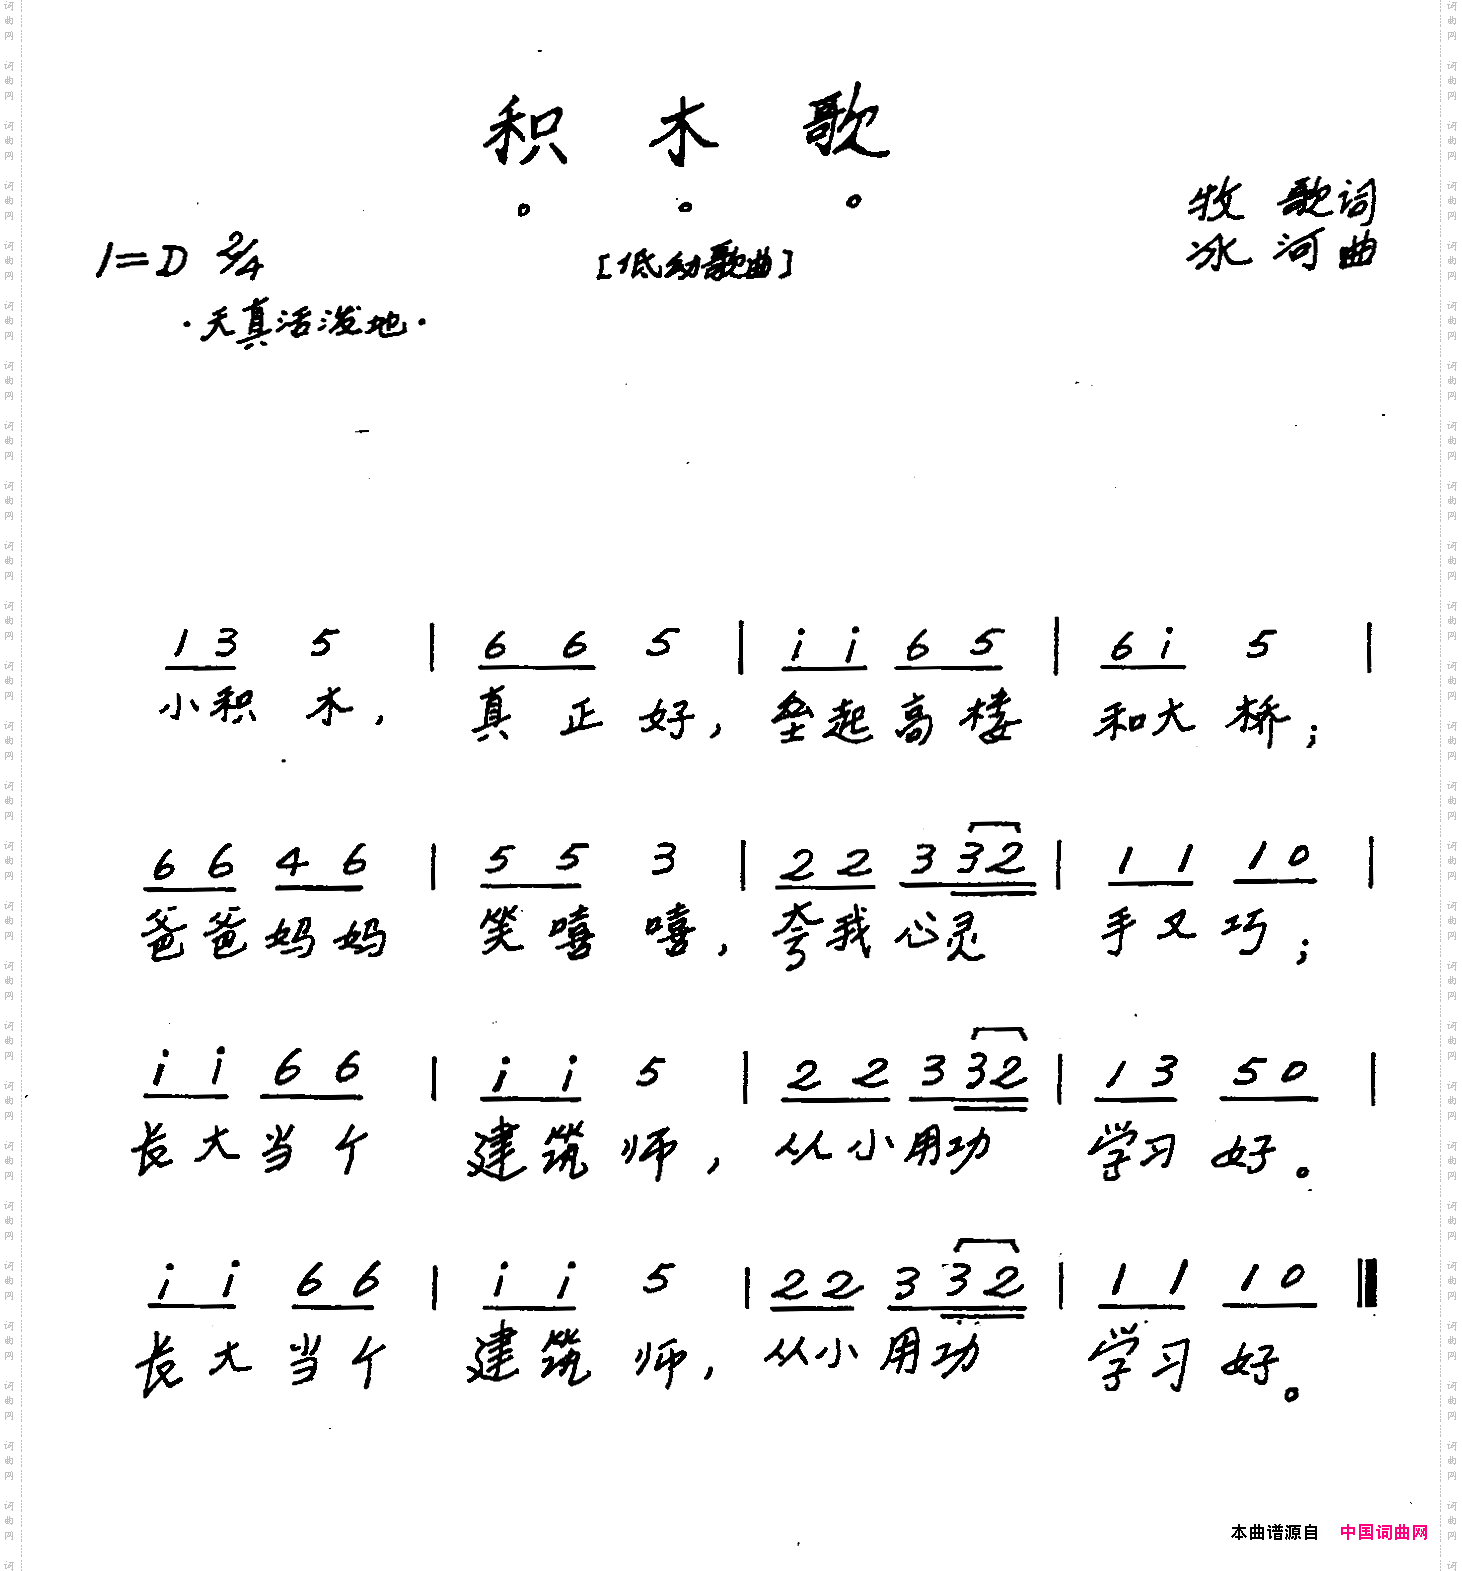 积木歌
牧歌词
1=D 2/4
[低幼歌曲]
冰河曲
·天真活泼地·
1 3 5 | 6 6 5 | i i 6 5 | 6 i 5 |
小积木，真正好，垒起高楼和大桥；
6 6 4 6 | 5 5 3 | 2 2 3 3 2 | 1 1 1 0 |
爸爸妈妈笑嘻嘻，夸我心灵手又巧；
i i 6 6 | i i 5 | 2 2 3 3 2 | 1 3 5 0 |
长大当个建筑师，从小用功学习好。
i i 6 6 | i i 5 | 2 2 3 3 2 | 1 1 1 0 ‖
长大当个建筑师，从小用功学习好。
本曲谱源自 中国词曲网